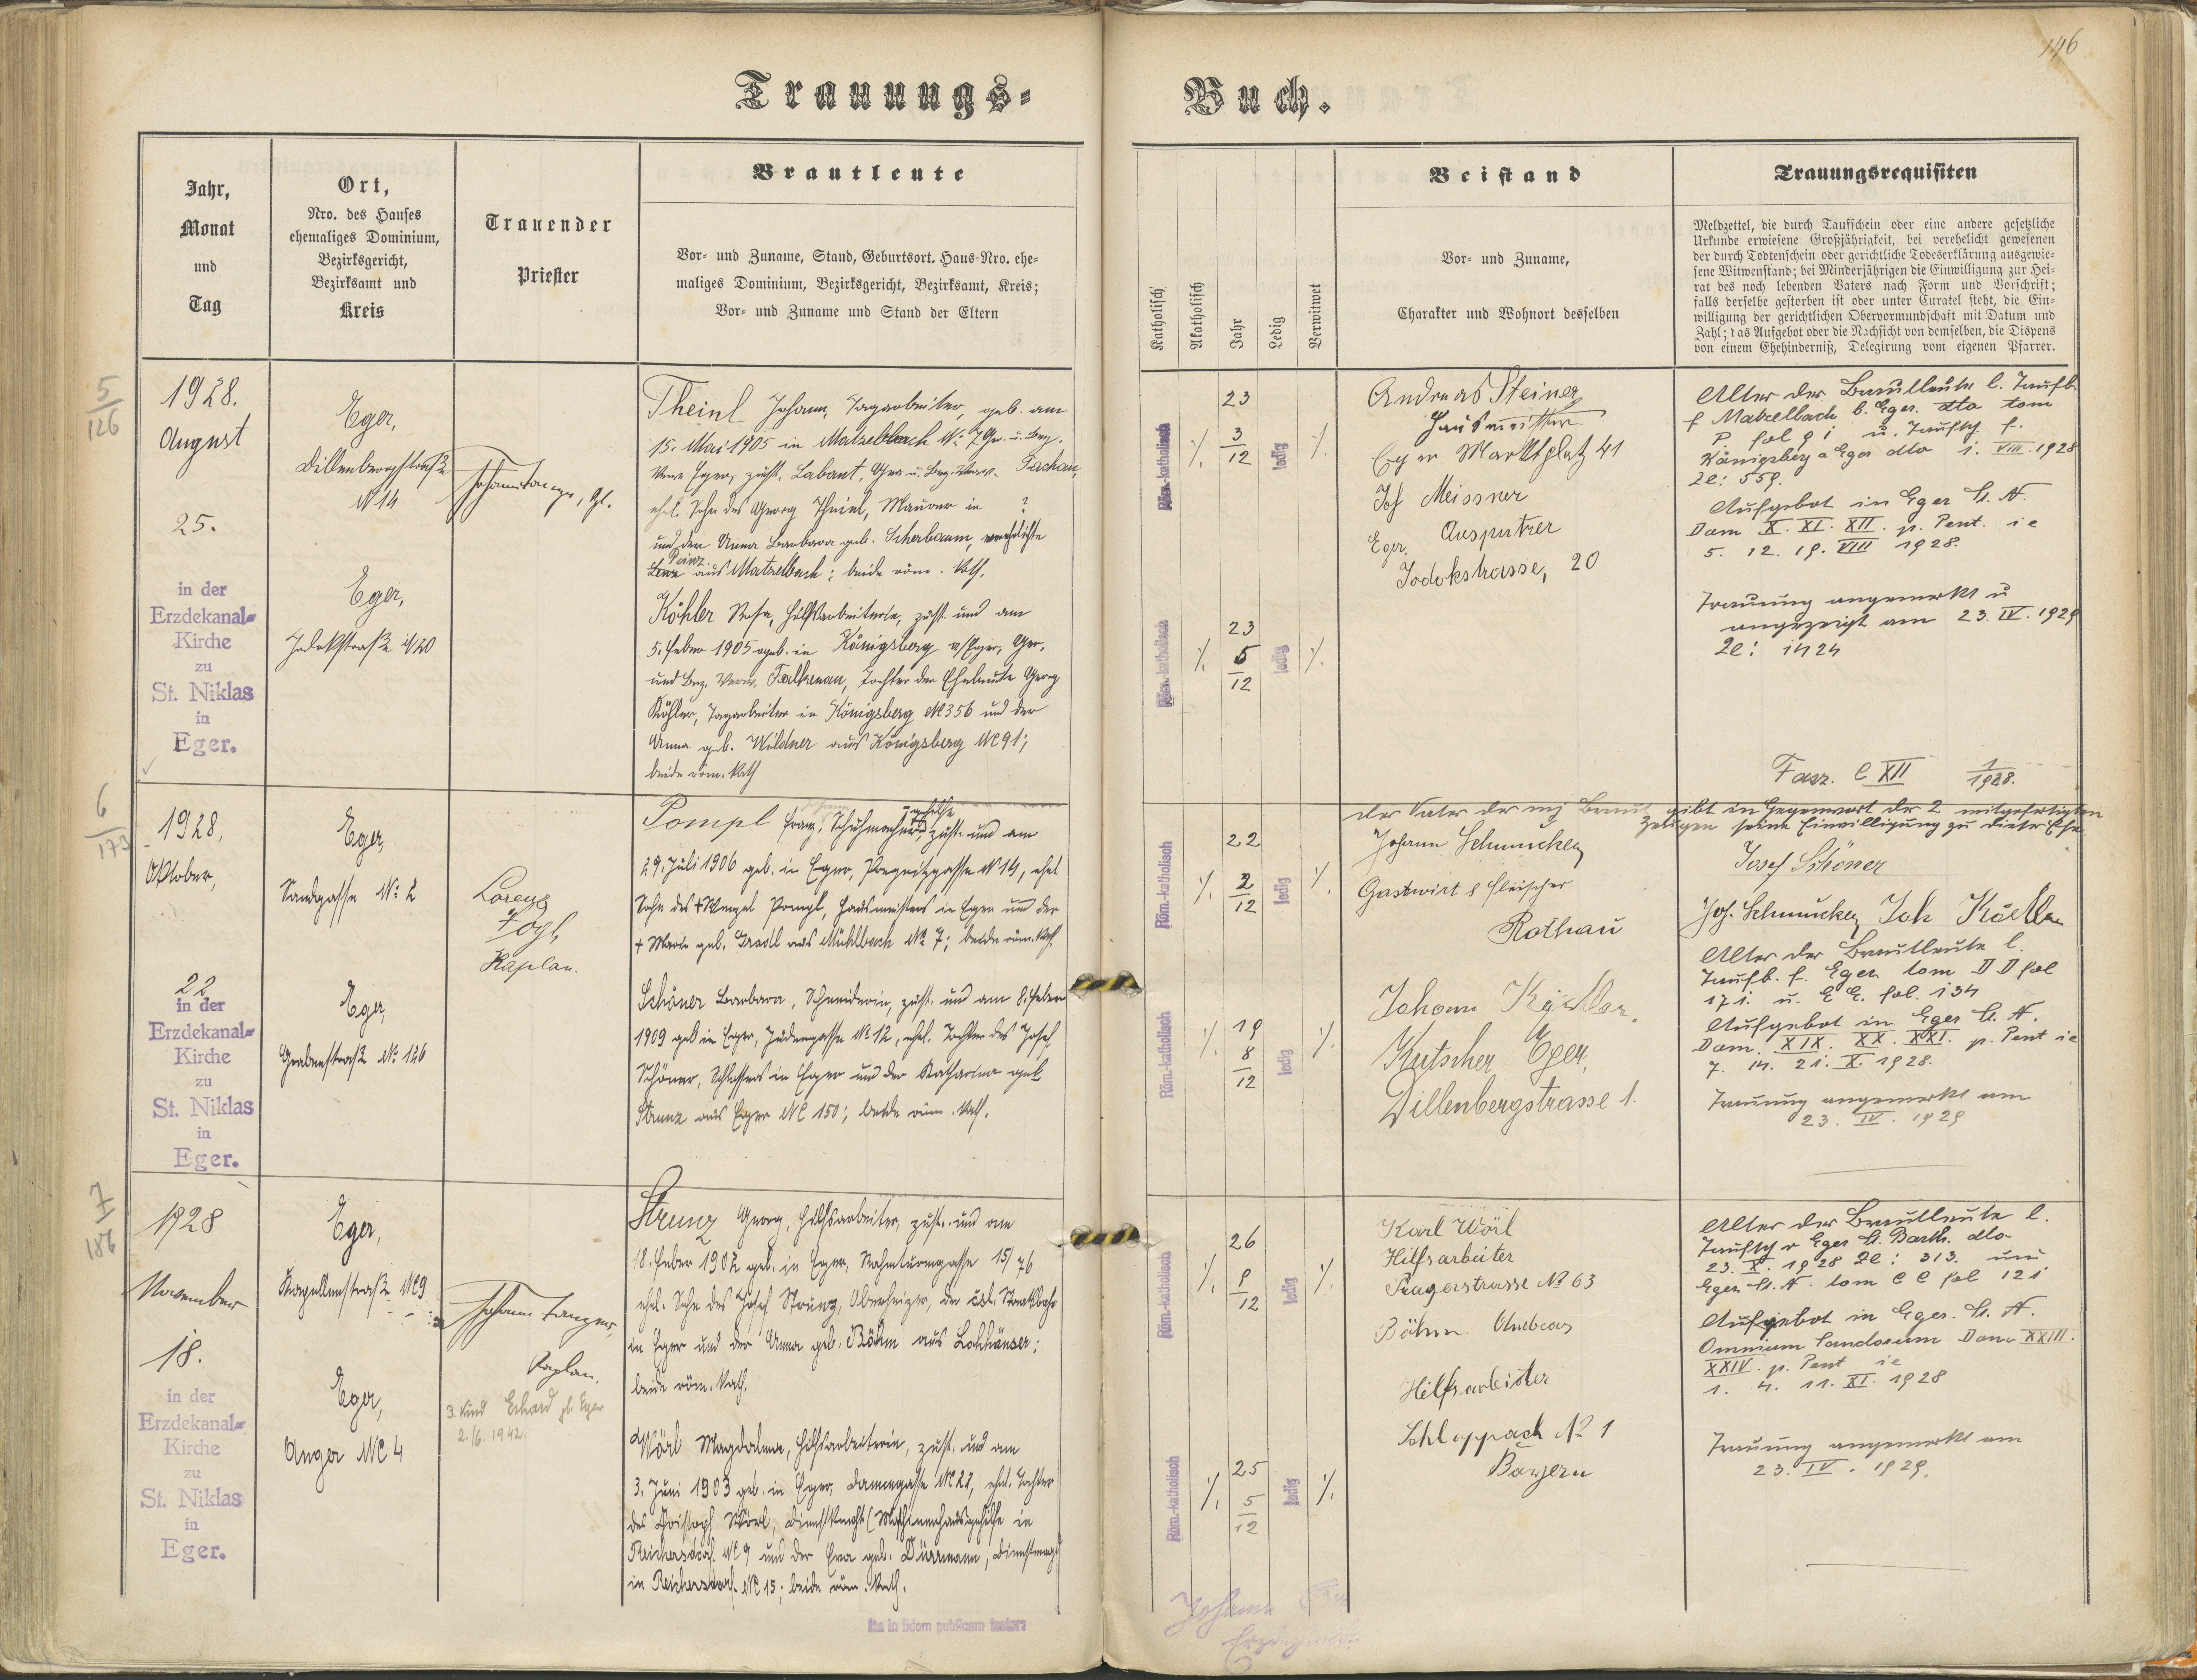 146
Trauungs=
Buch.
Jahr,
Monat
und
Tag
Ort,
Nro. des Hauses
ehemaliges Dominium,
Bezirksgericht,
Bezirksamt und
Kreis
Trauender
Priester
Brautleute
Vor- und Zuname, Stand, Geburtsort, Haus-Nro. ehe-
maliges Dominium, Bezirksgericht, Bezirksamt, Kreis;
Vor- und Zuname und Stand der Eltern
Katholisch
Akatholisch
Jahr
Ledig
Verwitwet
Beistand
Vor- und Zuname,
Charakter und Wohnort desselben
Trauungsrequisiten
Meldzettel, die durch Taufschein oder eine andere gesetzliche
Urkunde erwiesene Großjährigkeit, bei verehelicht gewesenen
der durch Todtenschein oder gerichtliche Todeserklärung ausgewie-
sene Witwenstand; bei Minderjährigen die Einwilligung zur Hei-
rat des noch lebenden Vaters nach Form und Vorschrift;
falls derselbe gestorben ist oder unter Curatel steht, die Ein-
willigung der gerichtlichen Obervormundschaft mit Datum und
Zahl; das Aufgebot oder die Nachsicht von demselben, die Dispens
von einem Ehehinderniß, Delegirung vom eigenen Pfarrer.
5
126
1928.
August
25.
in der
Erzdekanal=
Kirche
zu
St. Niklas
in
Eger.
Eger,
Dillenbergstraße
№ 14
Eger,
Jodokstraße № 20
Theinl Johann, Tagarbeiter, geb. am
15. Mai 1905 in Matzelbach № 7 Ger. u. Bez.
Verw. Eger, zust. Labant, Ger. u. Bez. Verw. Tachau,
ehel. Sohn des Georg Theinl, Maurer in ?
und der Anna Barbara geb. Scherbaum, verehelichte
Lenz aus Matzelbach; beide röm. kath.
Köhler Rosa, Hilfsarbeiterin, zust. und am
5. Feber 1905 geb. in Königsberg a/Eger, Ger.
und Bez. Verw. Falkenau, Tochter der Eheleute Georg
Köhler, Tagarbeiter in Königsberg № 356 und der
Anna geb. Wildner aus Königsberg № 91;
beide röm. kath
Röm.-katholisch
23
3
12
ledig
Röm.-katholisch
23
5
12
ledig
Andreas Steiner
Hausmeister
Eger Marktplatz 41
Jos Meissner
Eger. Ausputzer
Jodokstrasse, 20
Alter der Brautleute l. Taufb.
f Matzelbach b. Eger. dto tom
P fol 91 u. Taufsch. f.
Königsberg a Eger dto 1. VIII. 1928
Ze: 559.
Aufgebot in Eger St. N.
Dom X. XI. XII. p. Pent. ie
5. 12. 19. VIII 1928.
Trauung angemerkt u
angezeigt am 23. IV. 1929
Ze: 1424
Fasz. C XII 1/1928.
6
173
1928,
Oktober,
22
in der
Erzdekanal=
Kirche
zu
St. Niklas
in
Eger.
Eger,
Sandgasse №: 2
Eger,
Grabenstraße №: 126
Lorenz
Vogl,
Kaplan.
Pompl Franz, Schuhmachergehilfe, zust. und am
29. Juli 1906 geb. in Eger, № 14, ehel
Sohn des + Wenzel Pompl, Hausmeisters in Eger und der
+ Marie geb. Gradl aus Mühlbach № 7; beide röm. kath.
Schöner Barbara, Schneiderin, zust. und am 8. Feber
1909 geb in Eger, Judengasse № 12, ehel. Tochter des Josef
Schöner, Schlossers in Eger und der Katharina geb
Strunz aus Eger № 150; beide röm. kath.
Röm.-katholisch
22
2
12
ledig
Röm.-katholisch
19
8
12
ledig
der Vater der mj Braut gibt in Gegenwart der 2 mitgefertigten
Zeugen seine Einwilligung zu dieser Ehe
Johann Schmucker
Gastwirt & Fleischer
Rothau
Johann
Kutscher Eger,
Dillenbergstrasse 1.
Josef Schöner
Joh. Schmucker Joh
Alter der Brautleute l.
Taufb. f. Eger tom D D fol
171. u. E E. fol. 134
Aufgebot in Eger St. N.
Dom. XIX. XX. XXI. p. Pent ie
7. 14. 21. X. 1928.
Trauung angemerkt am
23. IV. 1929
7
186
1928
November
18.
in der
Erzdekanal=
Kirche
zu
St. Niklas
in
Eger.
Eger,
Kapellenstraße № 9
Eger,
Anger № 4
Johann Langer,
Kaplan.
3. Kind Erhard gb Eger
2./6. 1942.
Strunz Georg, Hilfsarbeiter, zust. und am
18. Feber 1902 geb. in Eger, 15/76
ehel. Sohn des Josef Strunz, Oberheizer, der Staatsbahn
in Eger und der Anna geb. Böhm aus Lohhäuser;
beide röm. kath.
Wörl Magdalena, Hilfsarbeiterin, zust. und am
3. Juni 1903 geb. in Eger, № 27, ehel. Tochter
des Christoph Wörl, Dienstknecht (Maschinenhausgehilfe in
Reichersdorf № 9 und der Eva geb. Dürrmann, Dienstmagd
in Reichersdorf № 15; beide röm. kath.
Röm.-katholisch
26
9
12
ledig
Röm.-katholisch
25
5
12
ledig
Karl Wörl
Hilfsarbeiter
Pragerstrasse № 63
Böhm Andreas
Hilfsarbeiter
Schloppach № 1
Bayern
Alter der Brautleute l.
Taufsch v Eger St. Barth. dto
23. X. 1928 Ze: 313. und
Eger St. N. tom C C fol 121
Aufgebot in Eger. St. N.
Omnium Sanctorum Dom XXIII.
XXIV. p. Pent ie
1. 4. 11. XI. 1928
Trauung angemerkt am
23. IV. 1929.
Ita in fidem publicam testor:
Johann